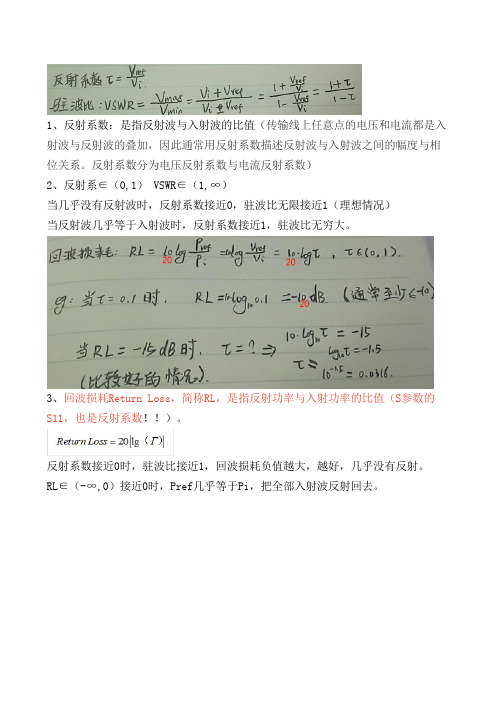 反射系数 τ = Vref / Vi
驻波比:VSWR = Vmax / Vmin = (Vi + Vref) / (Vi ± Vref) = (1 + Vref/Vi) / (1 - Vref/Vi) = (1+τ) / (1-τ)
1、反射系数:是指反射波与入射波的比值(传输线上任意点的电压和电流都是入
射波与反射波的叠加,因此通常用反射系数描述反射波与入射波之间的幅度与相
位关系。反射系数分为电压反射系数与电流反射系数)
2、反射系∈(0,1) VSWR∈(1,∞)
当几乎没有反射波时,反射系数接近0,驻波比无限接近1(理想情况)
当反射波几乎等于入射波时,反射系数接近1,驻波比无穷大。
回波损耗: RL = 10 log Pref/Pi = 10 log Vref/Vi = 10·log τ , τ∈(0,1).
20 20
eg: 当 τ = 0.1 时, RL = 10 log₁₀ 0.1 = -10 dB. (通常至少≤-10)
20
当 RL = -15 dB 时, τ = ? ⇒ 10·log₁₀ τ = -15
log₁₀ τ = -1.5
(比较好的情况). τ = 10^-1.5 = 0.0316.
3、回波损耗Return Loss,简称RL,是指反射功率与入射功率的比值(S参数的
S11,也是反射系数!!)。
Return Loss = 20|lg(Γ)|
反射系数接近0时,驻波比接近1,回波损耗负值越大,越好,几乎没有反射。
RL∈(-∞,0)接近0时,Pref几乎等于Pi,把全部入射波反射回去。